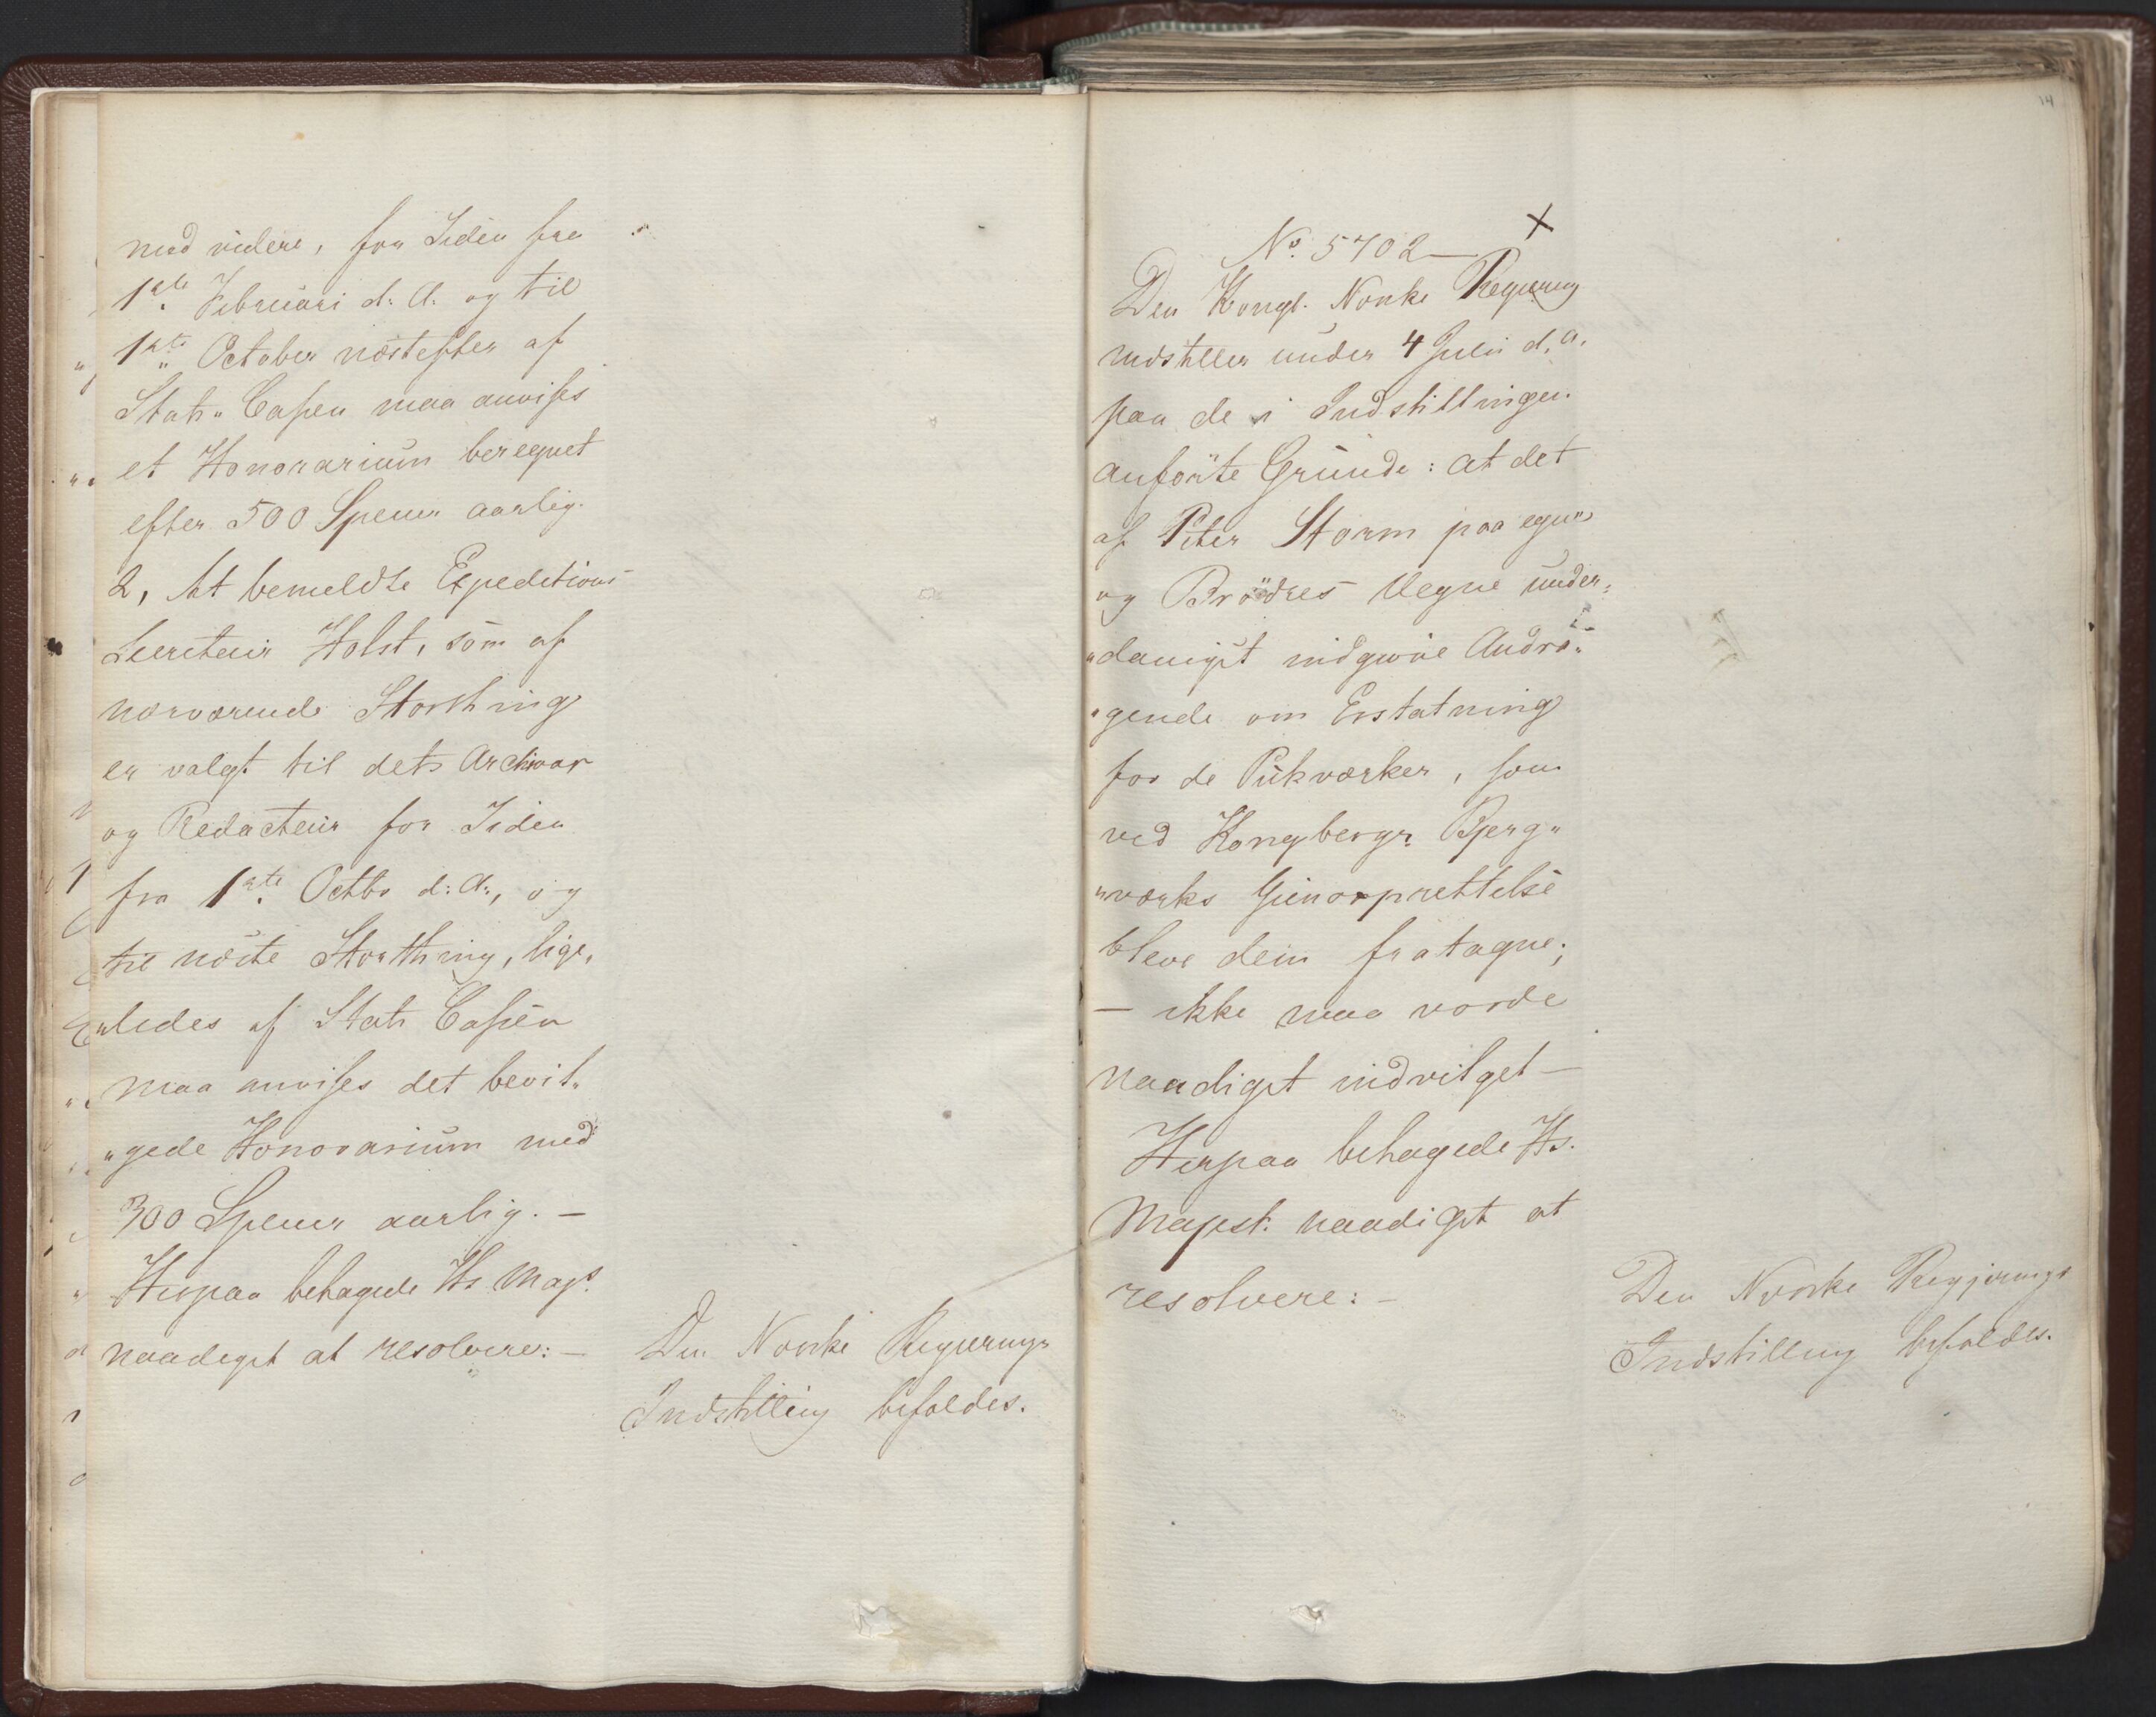 med videre, for Tiden fra
1ste Februari d: A: og til
1ste October næstefter af
Stats„ Cassen maa anvises
et Honorarium beregnet
efter 500 Specier aarlig.
2, At bemeldte Expeditions
Secreteur Holst, som af
nærværende Storthing
er valgt til dets Archivar
og Redacteur for Tiden
fra 1ste Octbr d: A:, og
til næste Storthing, lige„
„ledes af Stats Cassen
maa anvises det bevil„
„gede Honorarium med
300 Specier aarlig. —
Herpaa behagede Hs Majs.
naadigst at resolvere: —
Den Norske Regierings
Indstilling bifaldes.
14
No. 5702 —
Den Kongl. Norske Regiering
indstiller under 4 Julii d. a.
paa de i Indstillingen
anförte Grunde: at det
af Peter Storm paa egne
og Brödres Vegne under„
„danigst indgivne Andra„
„gende om Erstatning
for de Pukværker, som
ved Kongsbergs Bjerg„
„værks Gienoprettelse
bleve dem fratagne;
— ikke maa vorde
naadigst indvilget —
Herpaa behagede Hs.
Majest. naadigst at
resolvere: —
Den Norske Regjerings
Indstilling bifaldes.